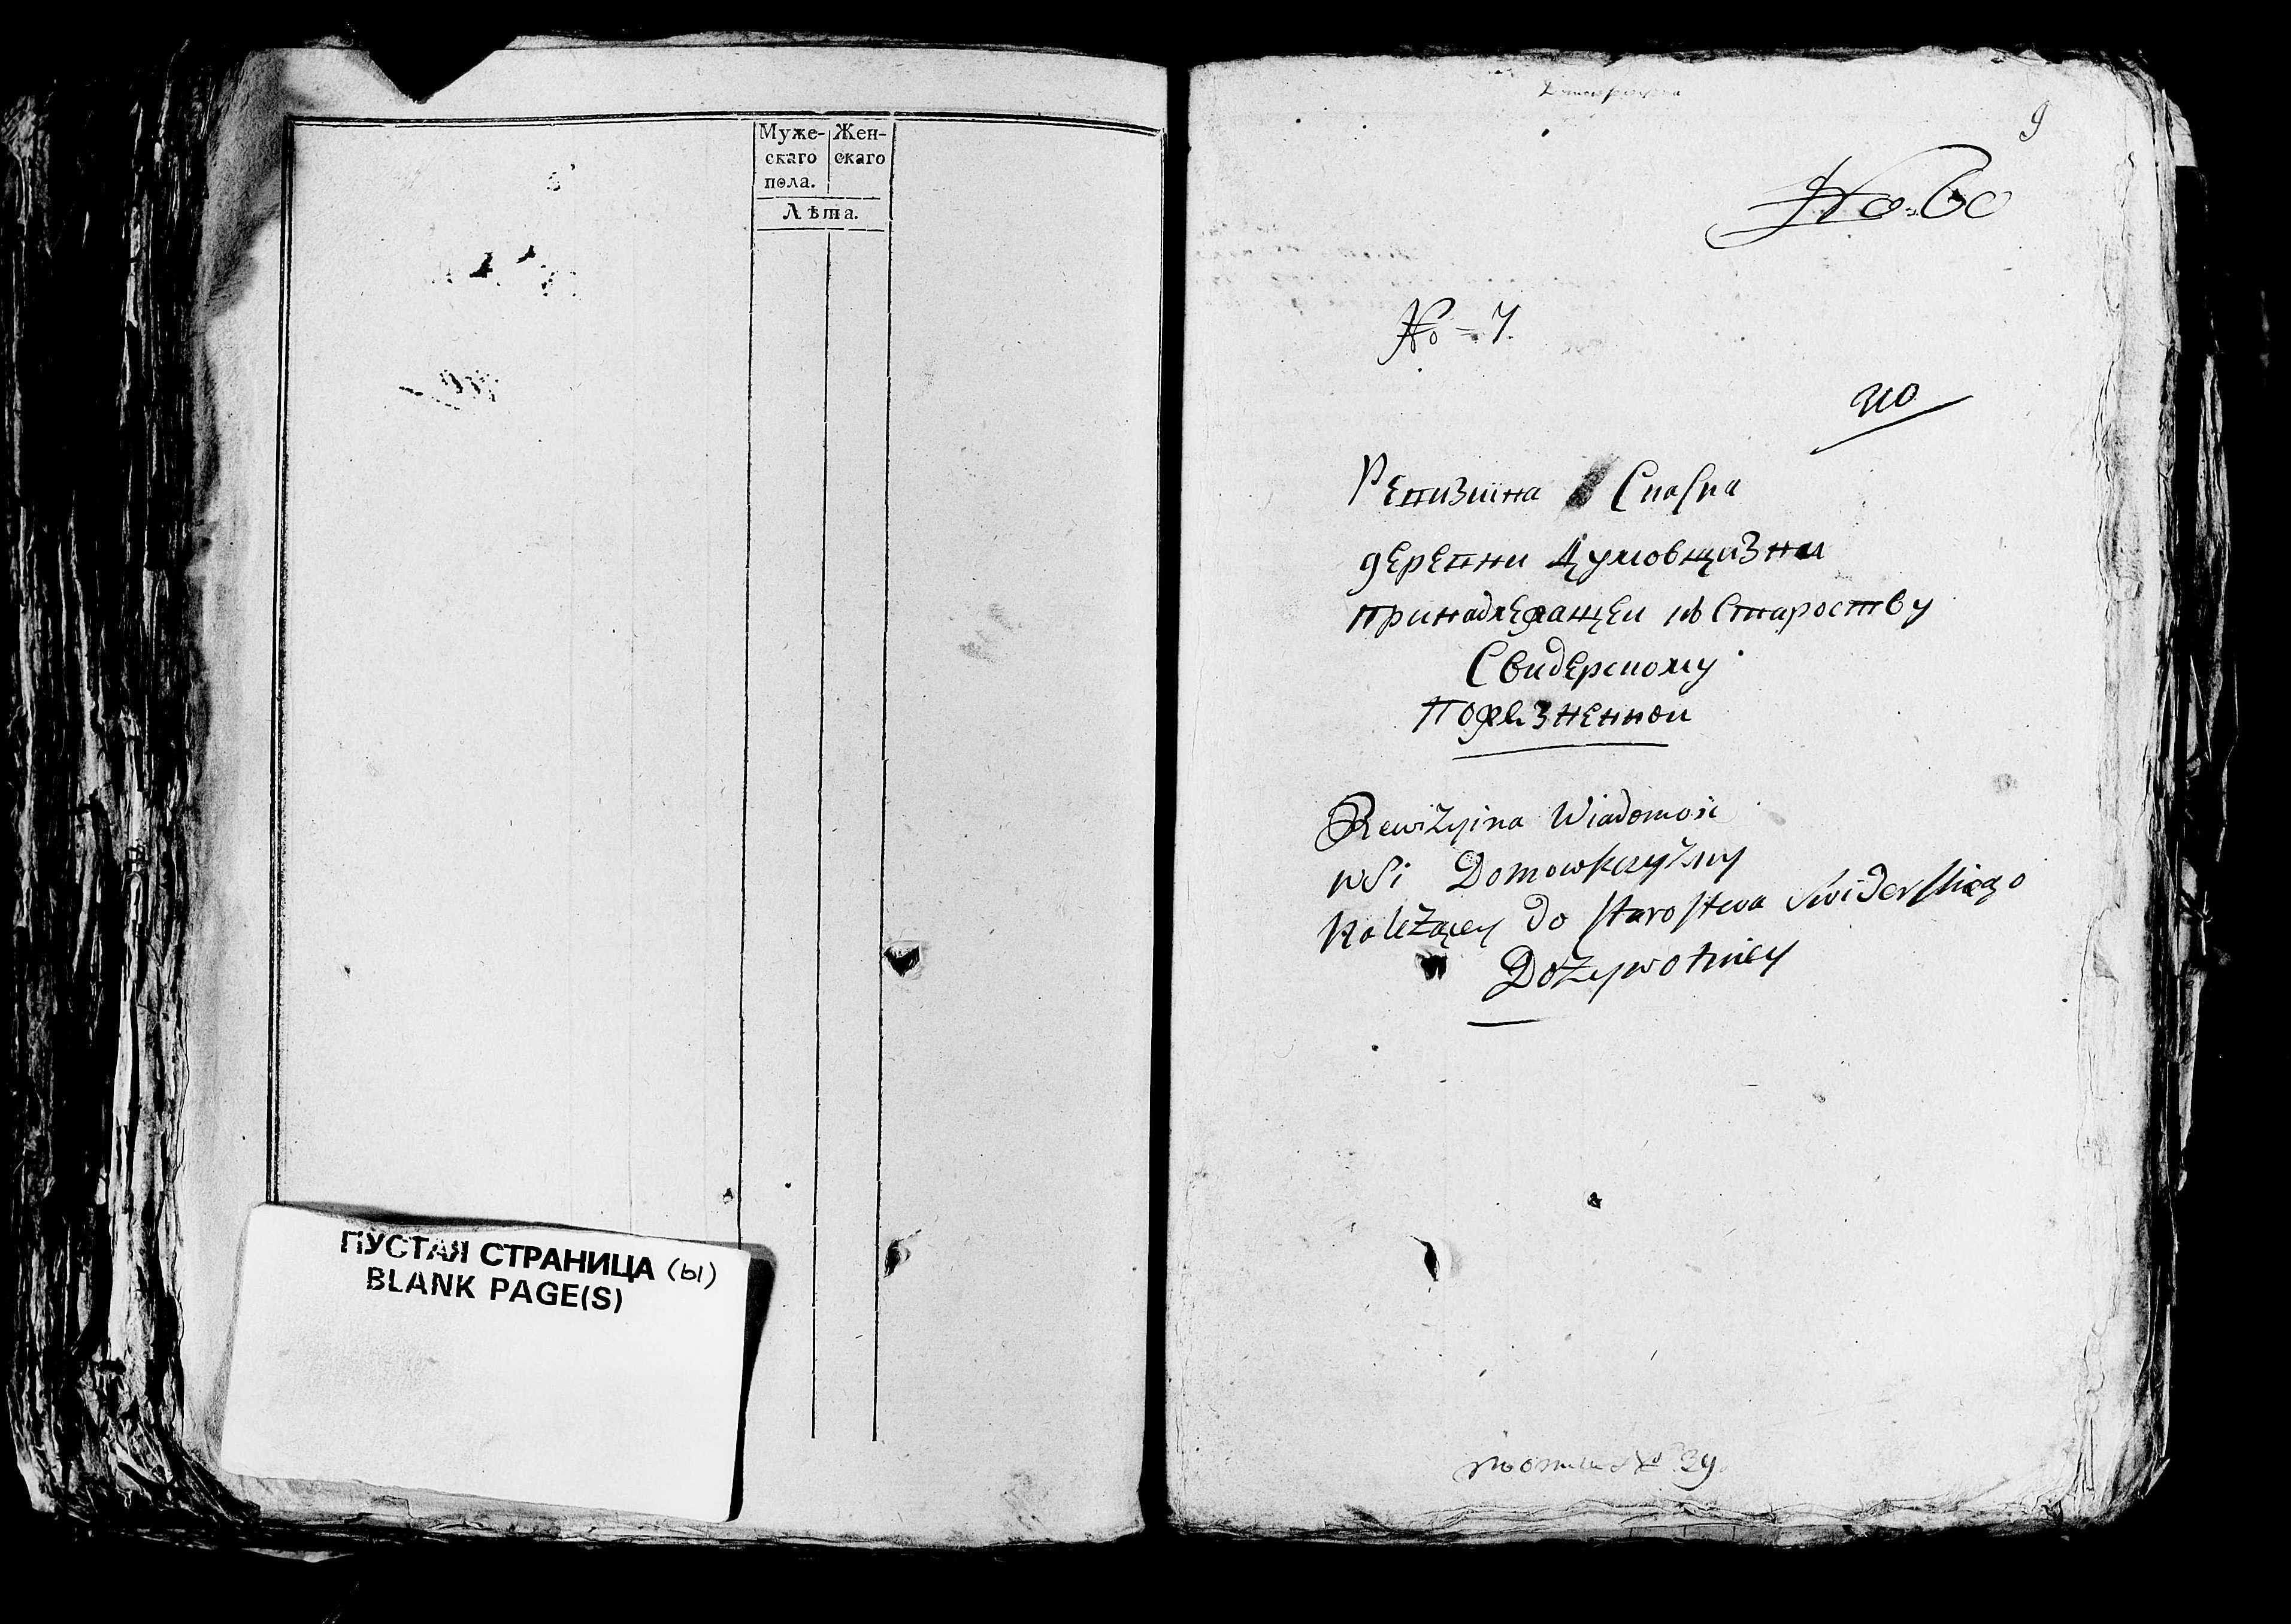 Муже- Жен-
скаго скаго
пола.
Лѣта.
ПУСТАЯ СТРАНИЦА (ы)
BLANK PAGE(S)
9
No = 60
No = 7.
Ревизиина Сказка
деревни Думовщизни
принадлежащеи къ Староству
Свидерскому
Пожизненнои
Rewizyina Wiadomosc
wsi Domowszczyzny
Należącey do starostwa Swiderskiego
Dożywotniey
№ 39